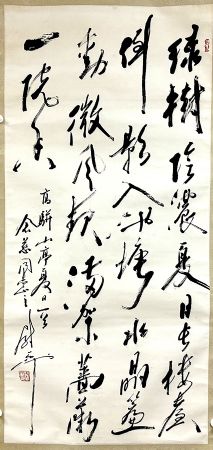 綠樹陰濃夏日長樓臺
倒影入池塘水晶簾
動微風起滿架薔薇
一院香
高駢山亭夏日一首